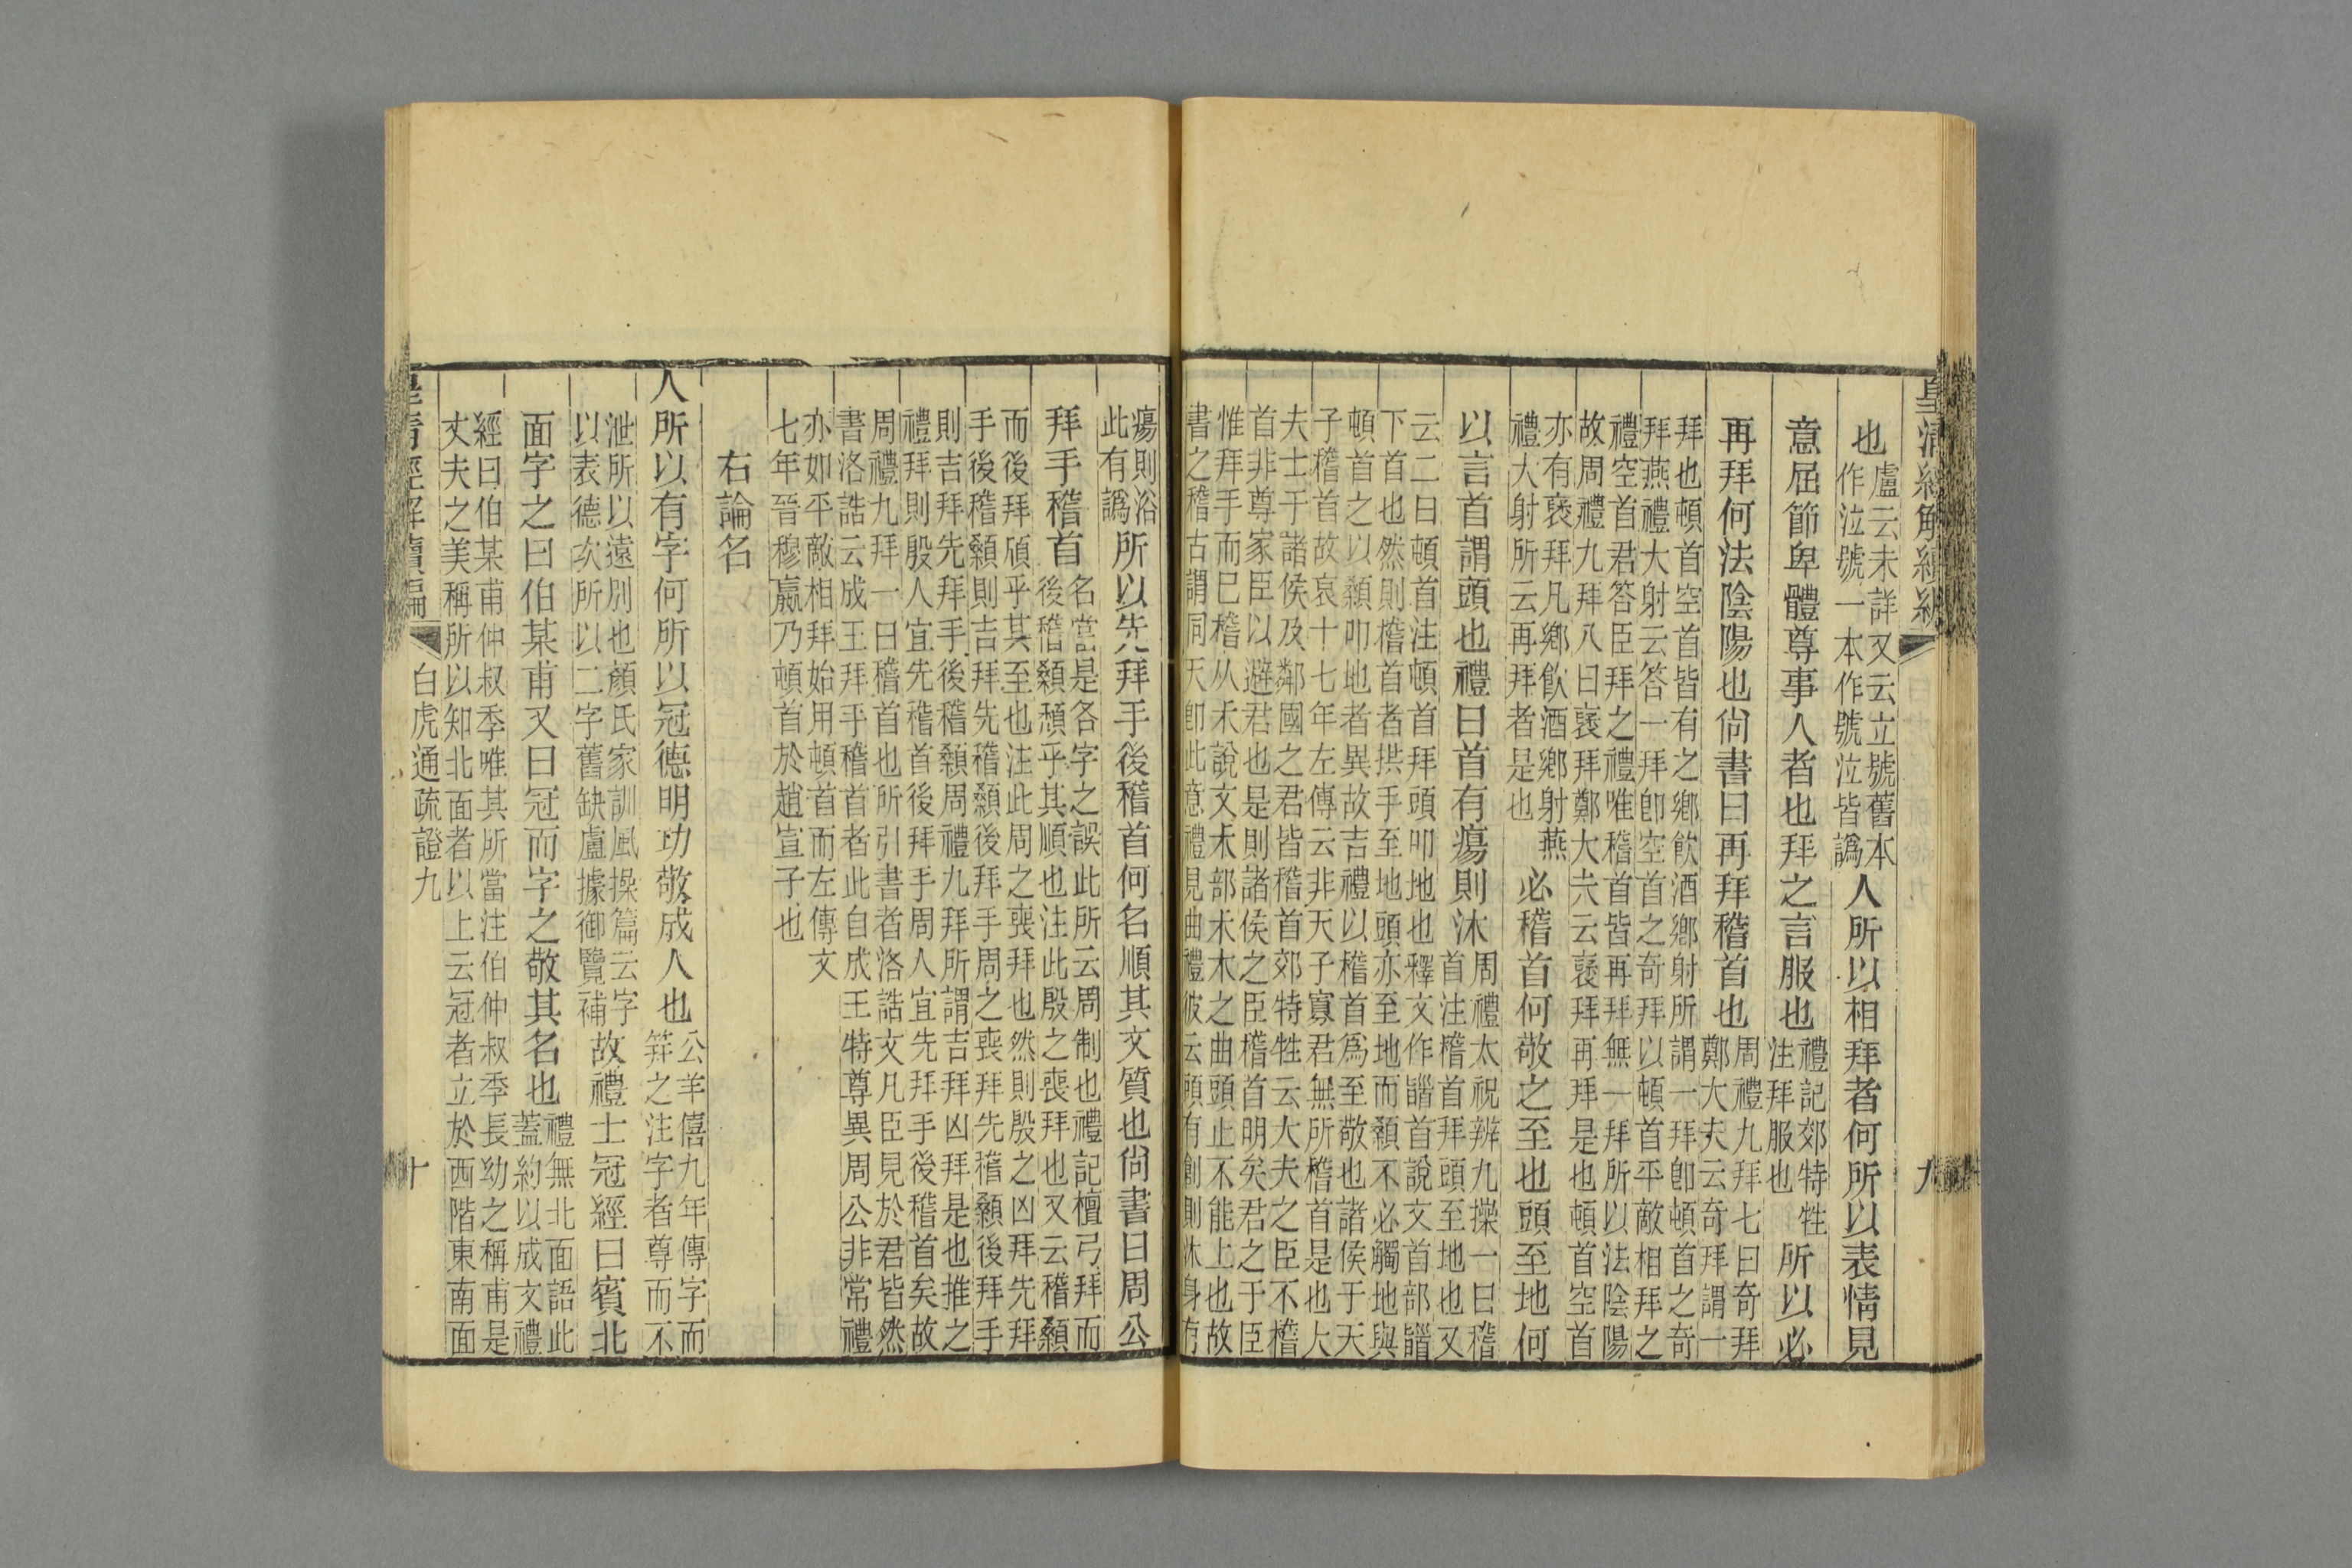 皇清經解續編
九
也盧云未詳又云立號舊本
作泣號一本作號泣皆譌人所以相拜者何所以表情見
意屈節卑體尊事人者也拜之言服也禮記郊特牲
注拜服也所以必
再拜何法陰陽也尙書曰再拜稽首也周禮九拜七曰奇拜
鄭大夫云奇拜謂一
拜也頓首空首皆有之鄉飲酒鄉射所謂一拜卽頓首之奇
拜燕禮大射云答一拜卽空首之奇拜以頓首平敵相拜之
禮空首君答臣拜之禮唯稽首皆再拜無一拜所以法陰陽
故周禮九拜八曰襃拜鄭大夫云襃拜再拜是也頓首空首
亦有襃拜凡鄉飲酒鄉射燕
禮大射所云再拜者是也必稽首何敬之至也頭至地何
以言首謂頭也禮曰首有瘍則沐周禮太祝辨九𢷎一曰稽
首注稽首拜頭至地也又
云二曰頓首注頓首拜頭叩地也釋文作䭫首說文首部䭫
下首也然則稽首者拱手至地頭亦至地而顙不必觸地與
頓首之以顙叩地者異故吉禮以稽首爲至敬也諸侯于天
子稽首故哀十七年左傳云非天子寡君無所稽首是也大
夫士于諸侯及鄰國之君皆稽首郊特牲云大夫之臣不稽
首非尊家臣以避君也是則諸侯之臣稽首明矣君之于臣
惟拜手而已稽从禾說文禾部禾木之曲頭止不能上也故
書之稽古謂同天卽此意禮見曲禮彼云頭有創則沐身有
瘍則浴
此有譌所以先拜手後稽首何名順其文質也尙書曰周公
拜手稽首名當是各字之誤此所云周制也禮記檀弓拜而
後稽顙頹乎其順也注此殷之喪拜也又云稽顙
而後拜頎乎其至也注此周之喪拜也然則殷之凶拜先拜
手後稽顙則吉拜先稽顙後拜手周之喪拜先稽顙後拜手
則吉拜先拜手後稽顙周禮九拜所謂吉拜凶拜是也推之
禮拜則殷人宜先稽首後拜手周人宜先拜手後稽首矣故
周禮九拜一曰稽首也所引書者洛誥文凡臣見於君皆然
書洛誥云成王拜手稽首者此自成王特尊異周公非常禮
亦如平敵相拜始用頓首而左傳文
七年晉穆嬴乃頓首於趙宣子也
右論名
人所以有字何所以冠德明功敬成人也公羊僖九年傳字而
笄之注字者尊而不
泄所以遠別也顏氏家訓風操篇云字
以表德次所以二字舊缺盧據御覽補故禮士冠經曰賓北
面字之曰伯某甫又曰冠而字之敬其名也禮無北面語此
蓋約以成文禮
經曰伯某甫仲叔季唯其所當注伯仲叔季長幼之稱甫是
丈夫之美稱所以知北面者以上云冠者立於西階東南面
皇清經解續編
白虎通疏證九
十